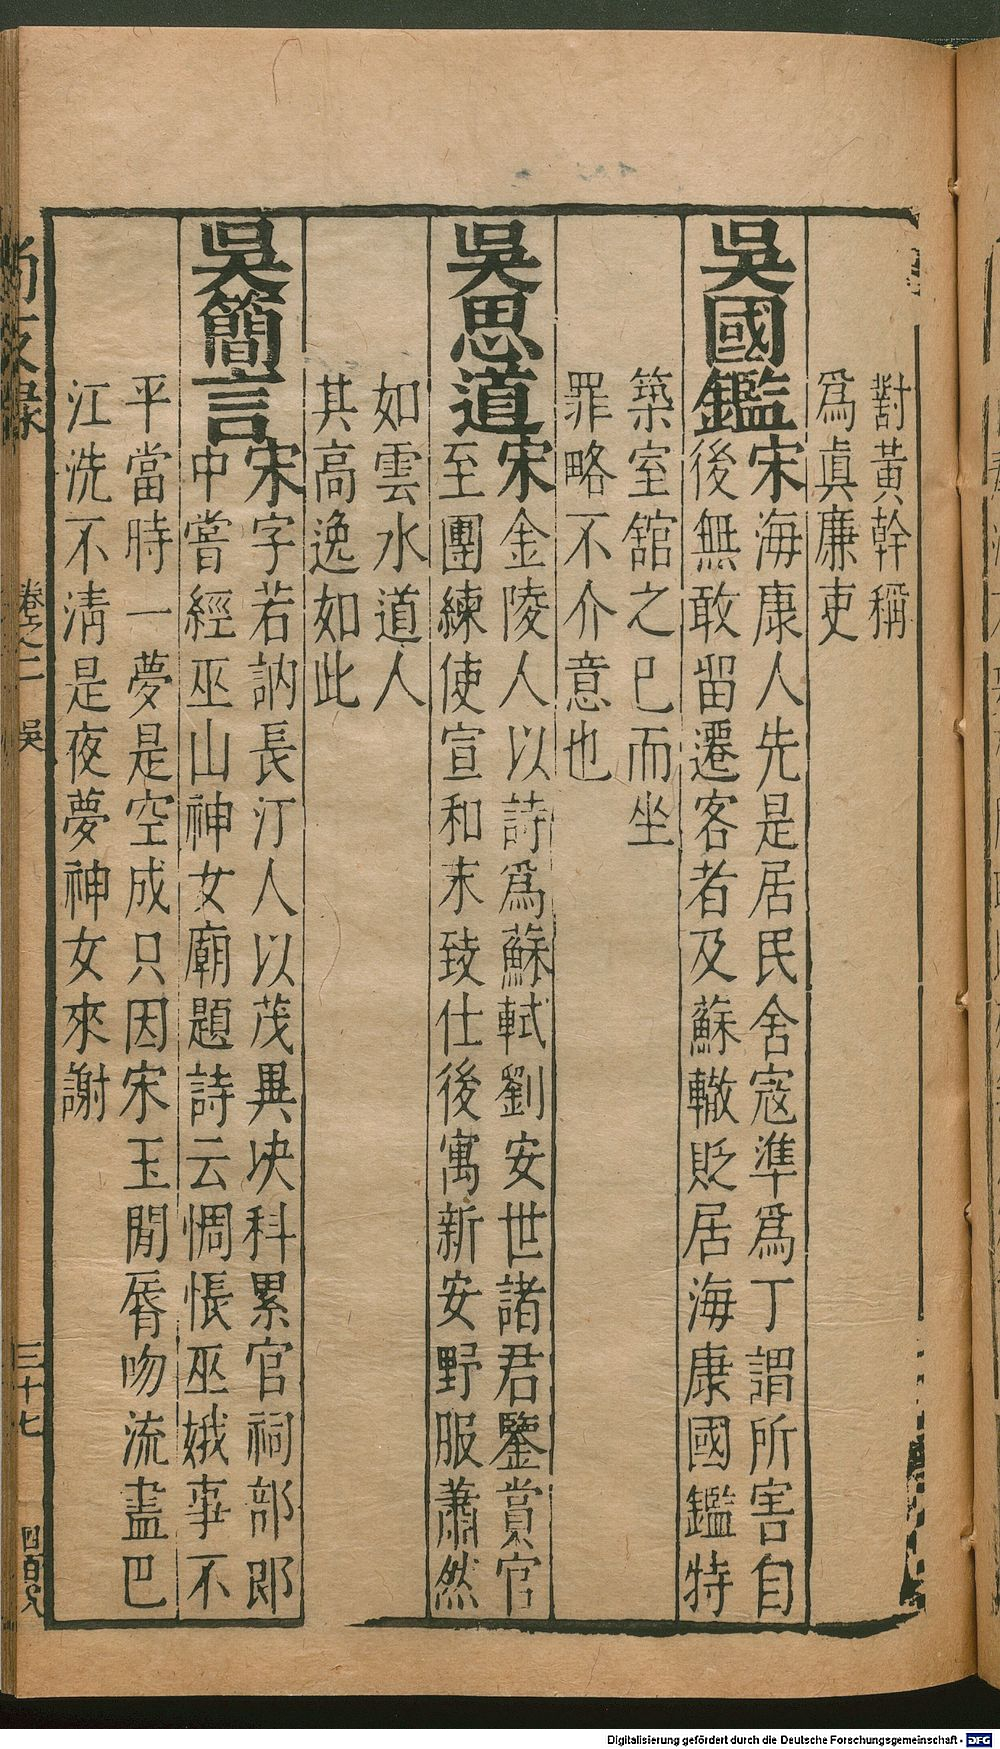 對黃幹稱
爲眞廉吏
吳國鑑
宋海康人先是居民舍寇準爲丁謂所害自
後無敢留遷客者及蘇轍貶居海康國鑑特
築室舘之已而坐
罪略不介意也
吳思道
宋金陵人以詩爲蘇軾劉安世諸君鑒賞官
至團練使宣和末致仕後寓新安野服蕭然
如雲水道人
其高逸如此
吳簡言
宋字若訥長汀人以茂異决科累官祠部郎
中嘗經巫山神女廟題詩云惆悵巫娥事不
平當時一夢是空成只因宋玉閒脣吻流盡巴
江洗不淸是夜夢神女來謝
卷之二 吳
三十七
Digitalisierung gefördert durch die Deutsche Forschungsgemeinschaft - DFG